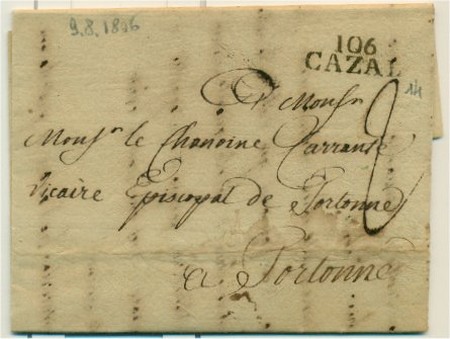 9.8.1806
106
CAZAL
A Monsr
14
Monsr le Chanoine Carrante
2
Vicaire Episcopal de Tortonne
a Tortonne